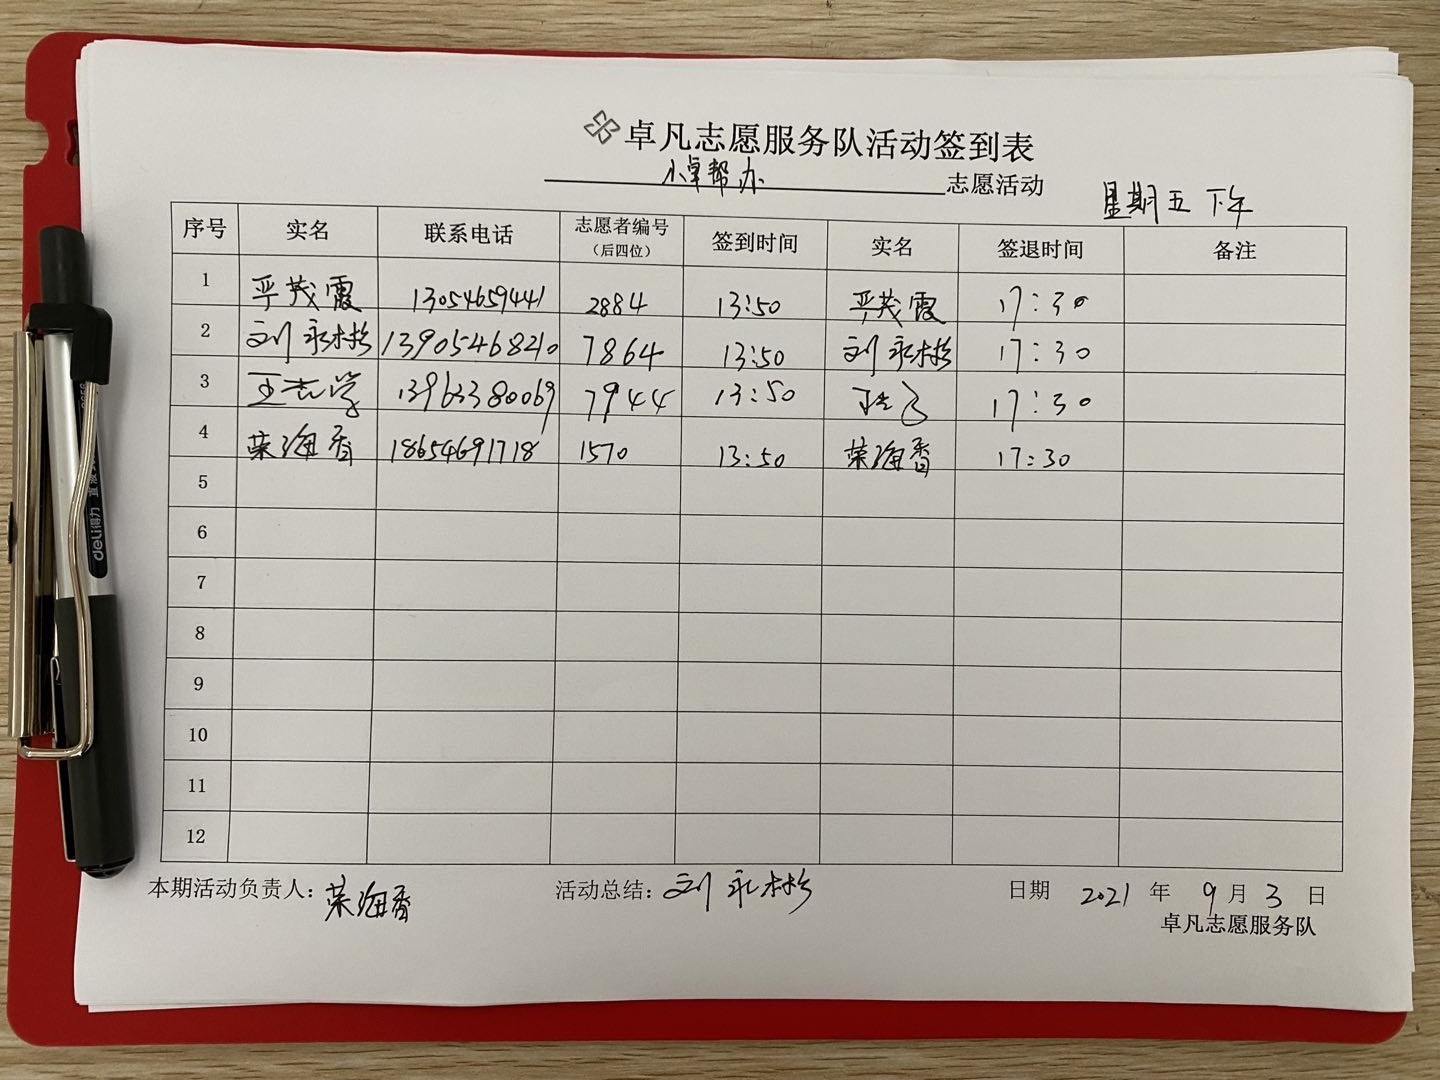 卓凡志愿服务队活动签到表
小卓帮办 志愿活动
星期五 下午
序号 实名 联系电话 志愿者编号（后四位） 签到时间 实名 签退时间 备注
1 严茂霞 13054659441 2884 13:50 严茂霞 17:30
2 刘永彬 13905468210 7864 13:50 刘永彬 17:30
3 王志学 13963380069 7944 13:50 17:30
4 荣海香 18654691718 1570 13:50 荣海香 17:30
5
6
7
8
9
10
11
12
本期活动负责人：荣海香 活动总结：刘永彬 日期 2021 年 9 月 3 日
卓凡志愿服务队
deli得力